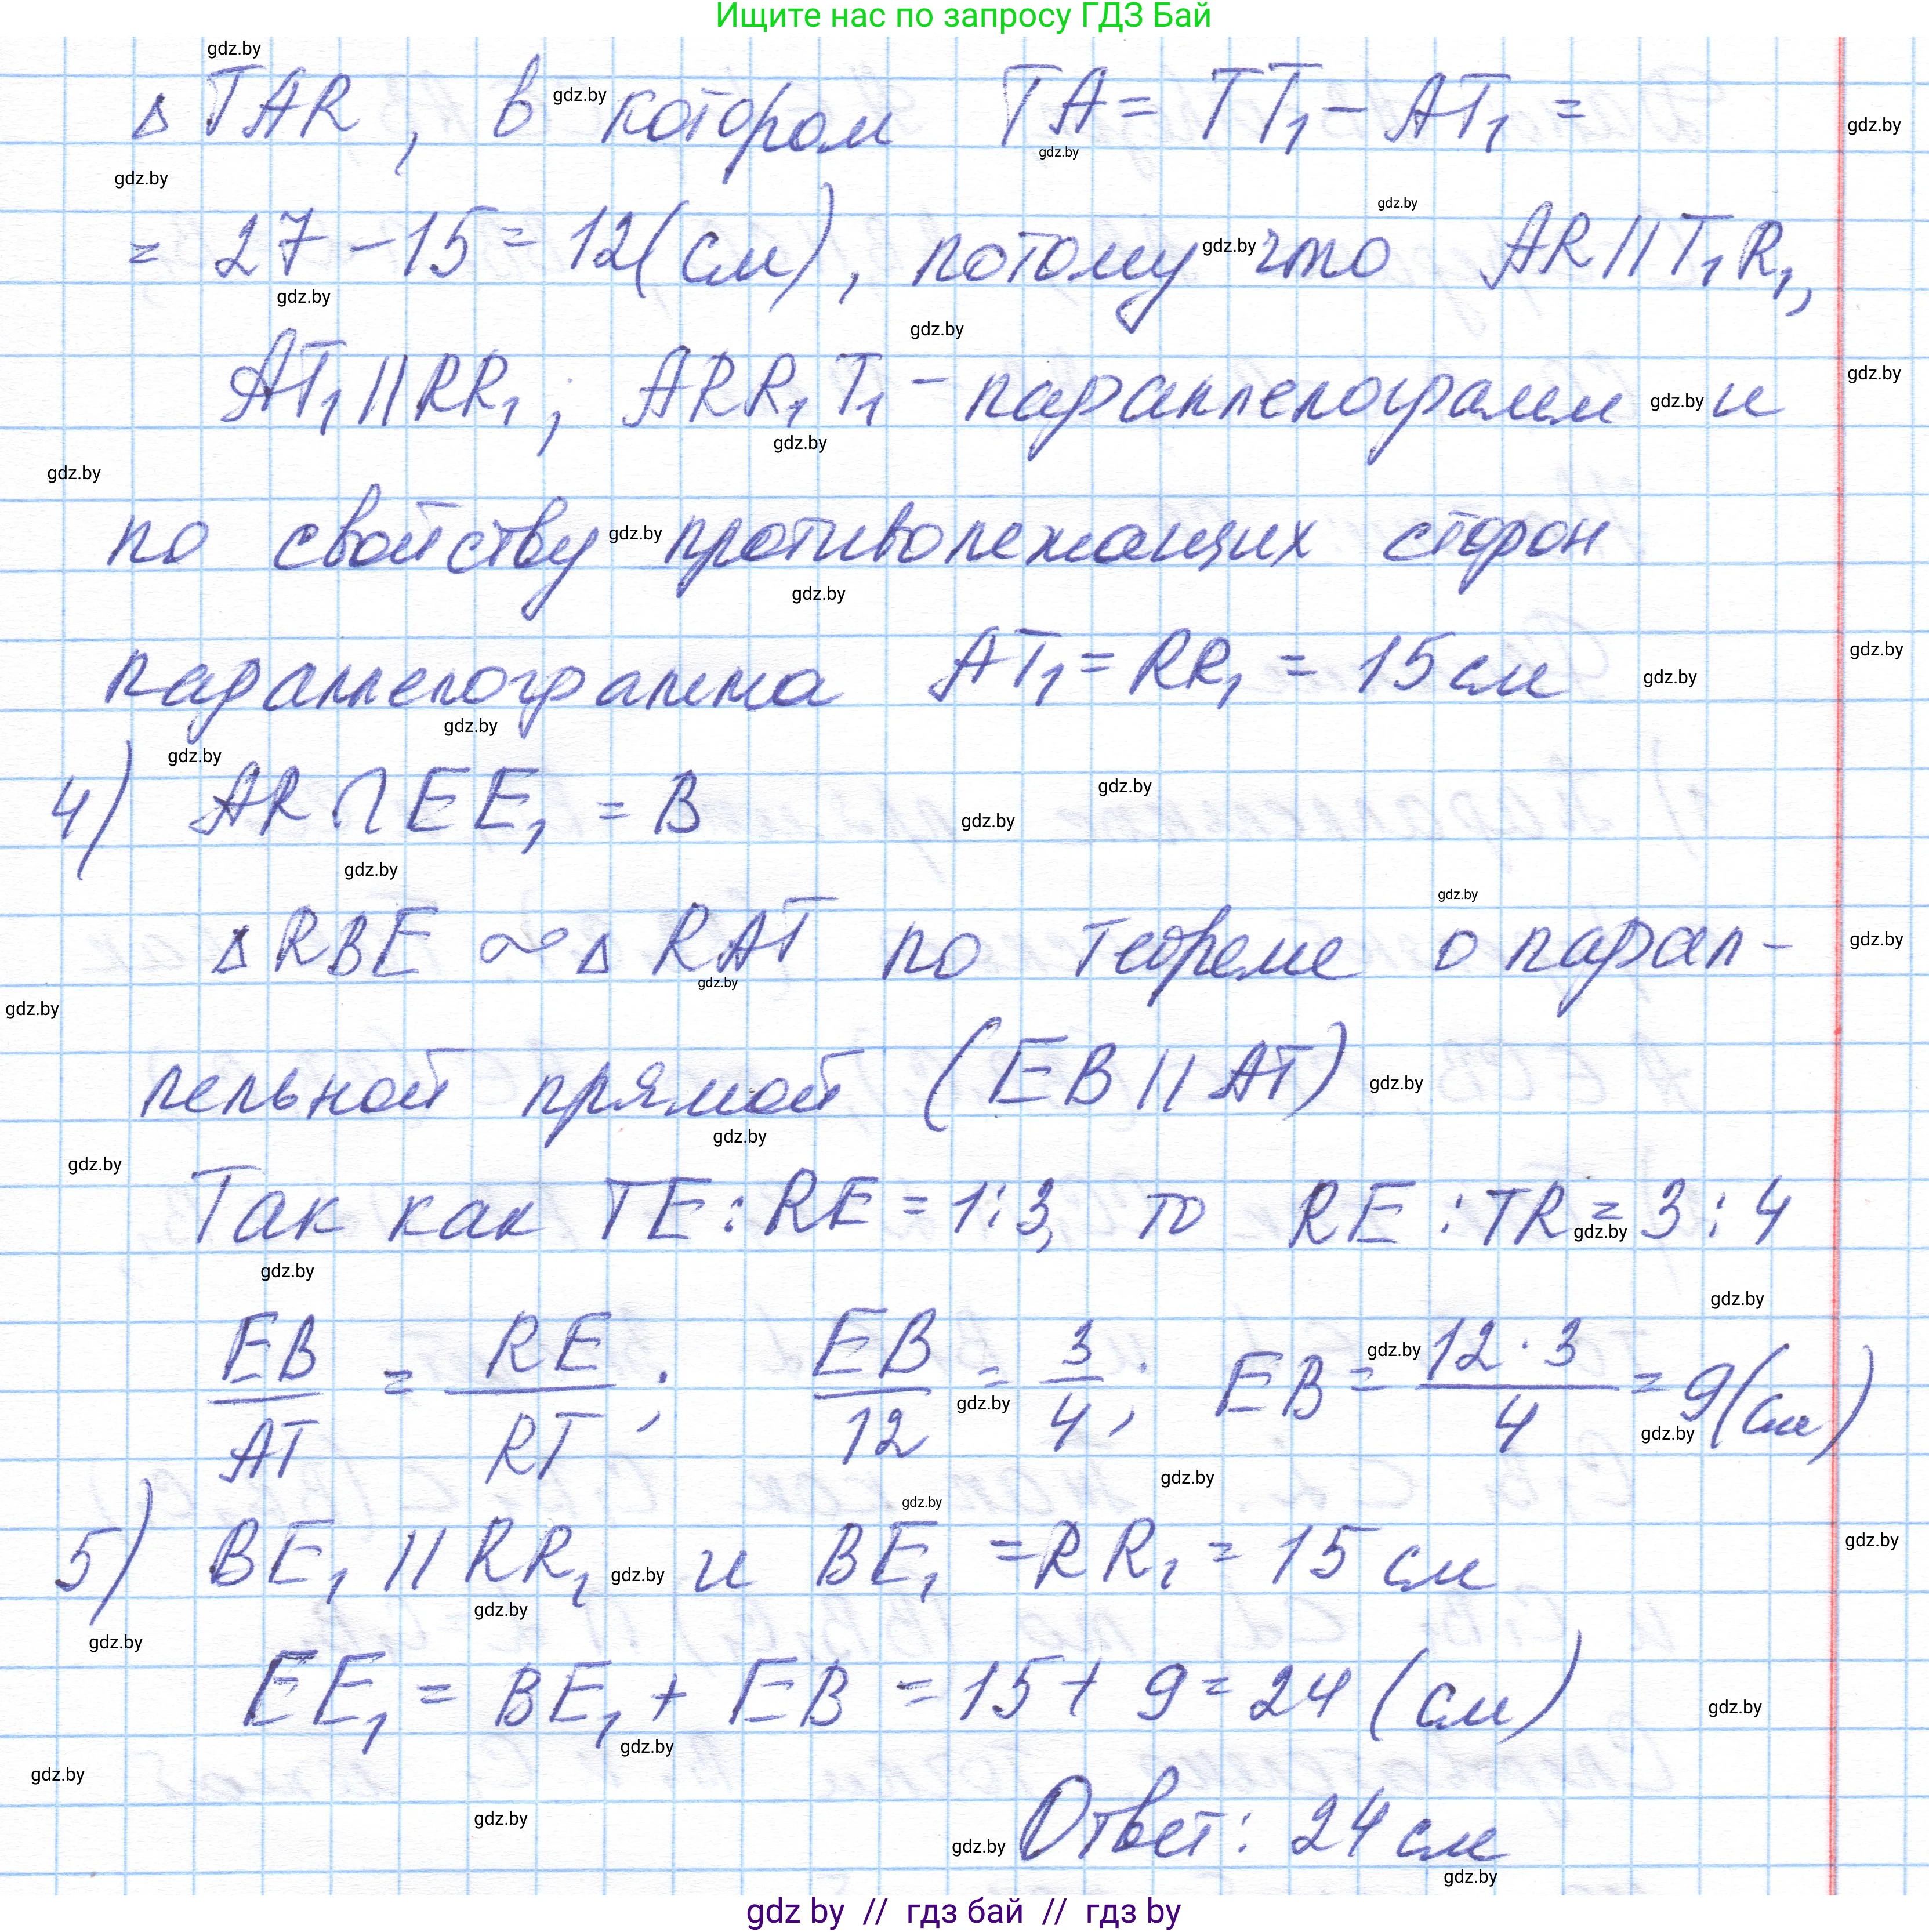 Ищите нас по запросу ГДЗ Бай
gdz.by
Δ TAR, в gdz.by котором TA = TT₁ - AT₁ =
gdz.by
gdz.by
gdz.by
gdz.by
= 27 - 15 = 12 (см), потому gdz.by что AR || T₁R₁,
gdz.by
gdz.by
AT₁ || RR₁; ARR₁T₁ - параллелограмм gdz.by и
gdz.by
gdz.by
gdz.by
по свойству gdz.by противолежащих сторон
gdz.by
параллелограмма AT₁ = RR₁ = 15 см
gdz.by
gdz.by
gdz.by
gdz.by
4) AR ∩ EE₁ = B
gdz.by
gdz.by
gdz.by
gdz.by
Δ RBE ∾ Δ RAT по теореме о парал-
gdz.by
gdz.by
gdz.by
лельной прямой (EB || AT) gdz.by
gdz.by
gdz.by
Так как TE : RE = 1 : 3, то RE : TR = 3 : 4
gdz.by
gdz.by
gdz.by
EB/AT = RE/RT; EB/12 = 3/4; EB = 12 · 3/4 = 9 (см)
gdz.by
gdz.by
gdz.by
gdz.by
gdz.by
5) BE₁ || RR₁ gdz.by и BE₁ = RR₁ = 15 см
gdz.by
gdz.by
gdz.by
EE₁ = BE₁ + EB = 15 + 9 = 24 (см)
gdz.by
gdz.by
gdz.by
gdz.by
gdz.by Ответ: 24 см
gdz.by
gdz by // гдз бай // гдз by